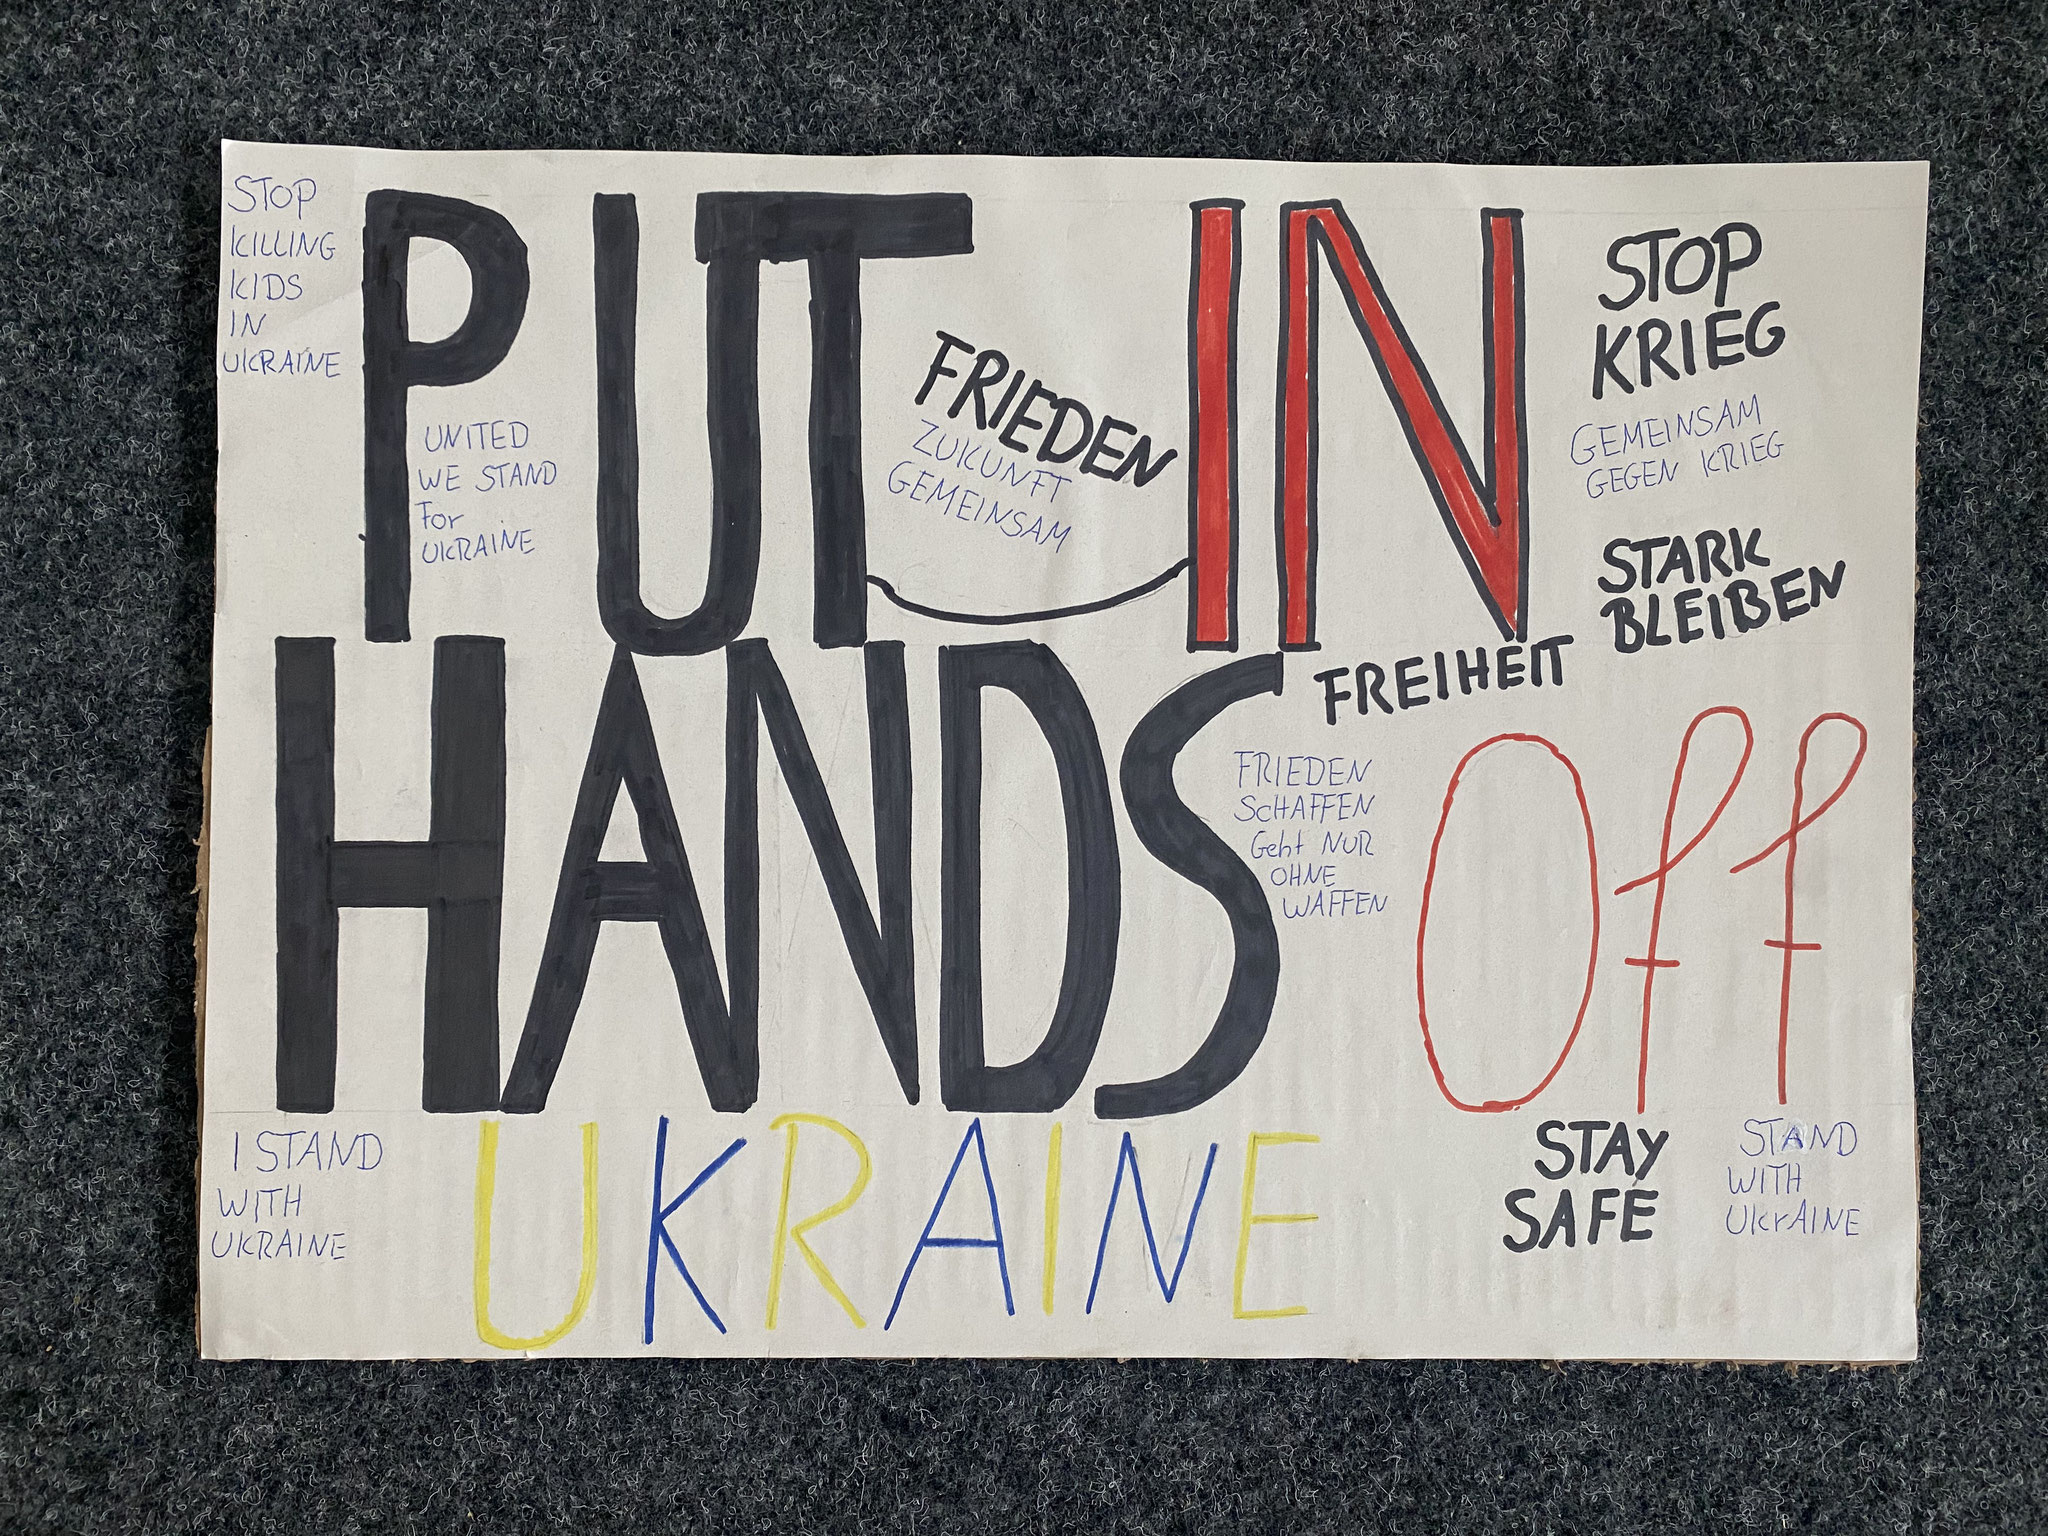 STOP
KILLING
KIDS
IN
UKRAINE
PUT IN
UNITED
WE STAND
For
UKRAINE
FRIEDEN
ZUKUNFT
GEMEINSAM
STOP
KRIEG
GEMEINSAM
GEGEN KRIEG
STARK
BLEIBEN
FREIHEIT
HANDS Off
FRIEDEN
ScHAFFEN
Geht NUR
OHNE
WAFFEN
UKRAINE
I STAND
WITH
UKRAINE
STAY
SAFE
STAND
WITH
UKrAINE